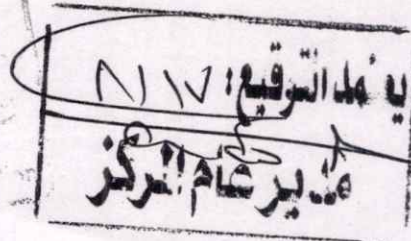 يعتمد التوقيع: ٨/١٧
مدير عام المركز